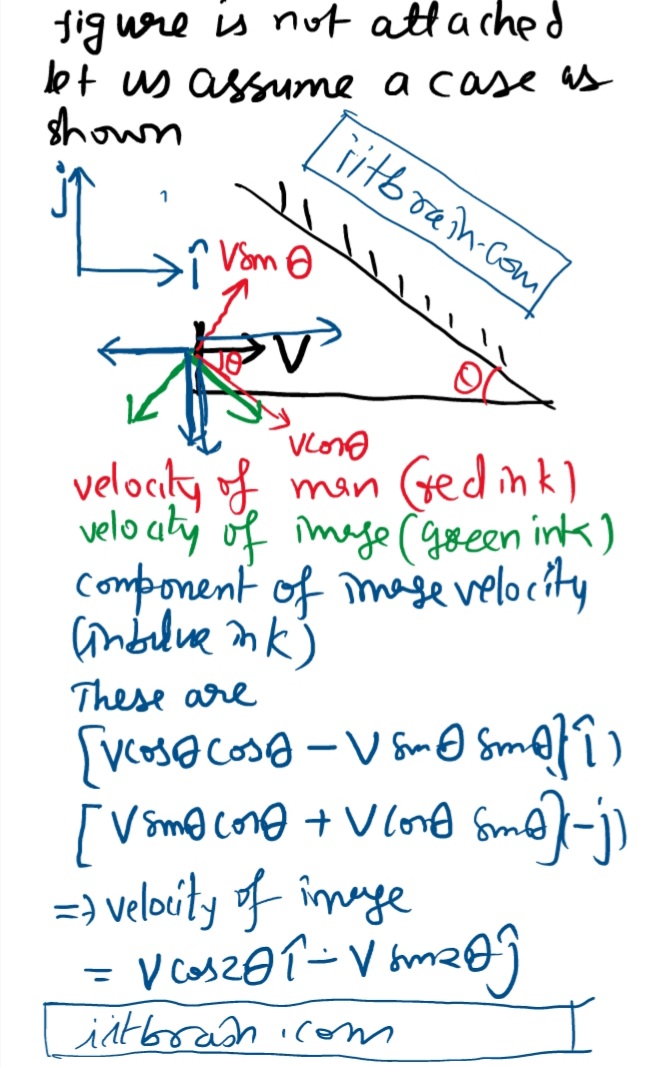 figure is not attached
let us assume a case as
shown
iitbrain.com
j
î
Vsin θ
V
θ
θ
vcosθ
velocity of man (red ink)
velocity of image (green ink)
component of image velocity
(in blue ink)
These are
[vcosθ cosθ - V sinθ sinθ] î)
[V sinθ cosθ + V cosθ sinθ](-j)
=> velocity of image
= V cos2θ î - V sin2θ ĵ
iitbrain.com